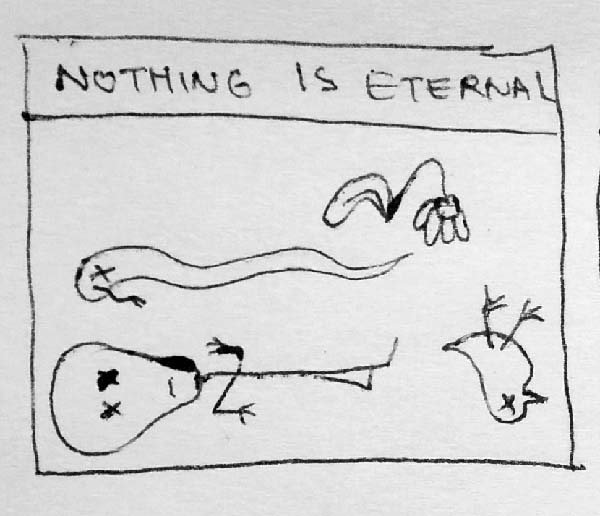 NOTHING IS ETERNAL